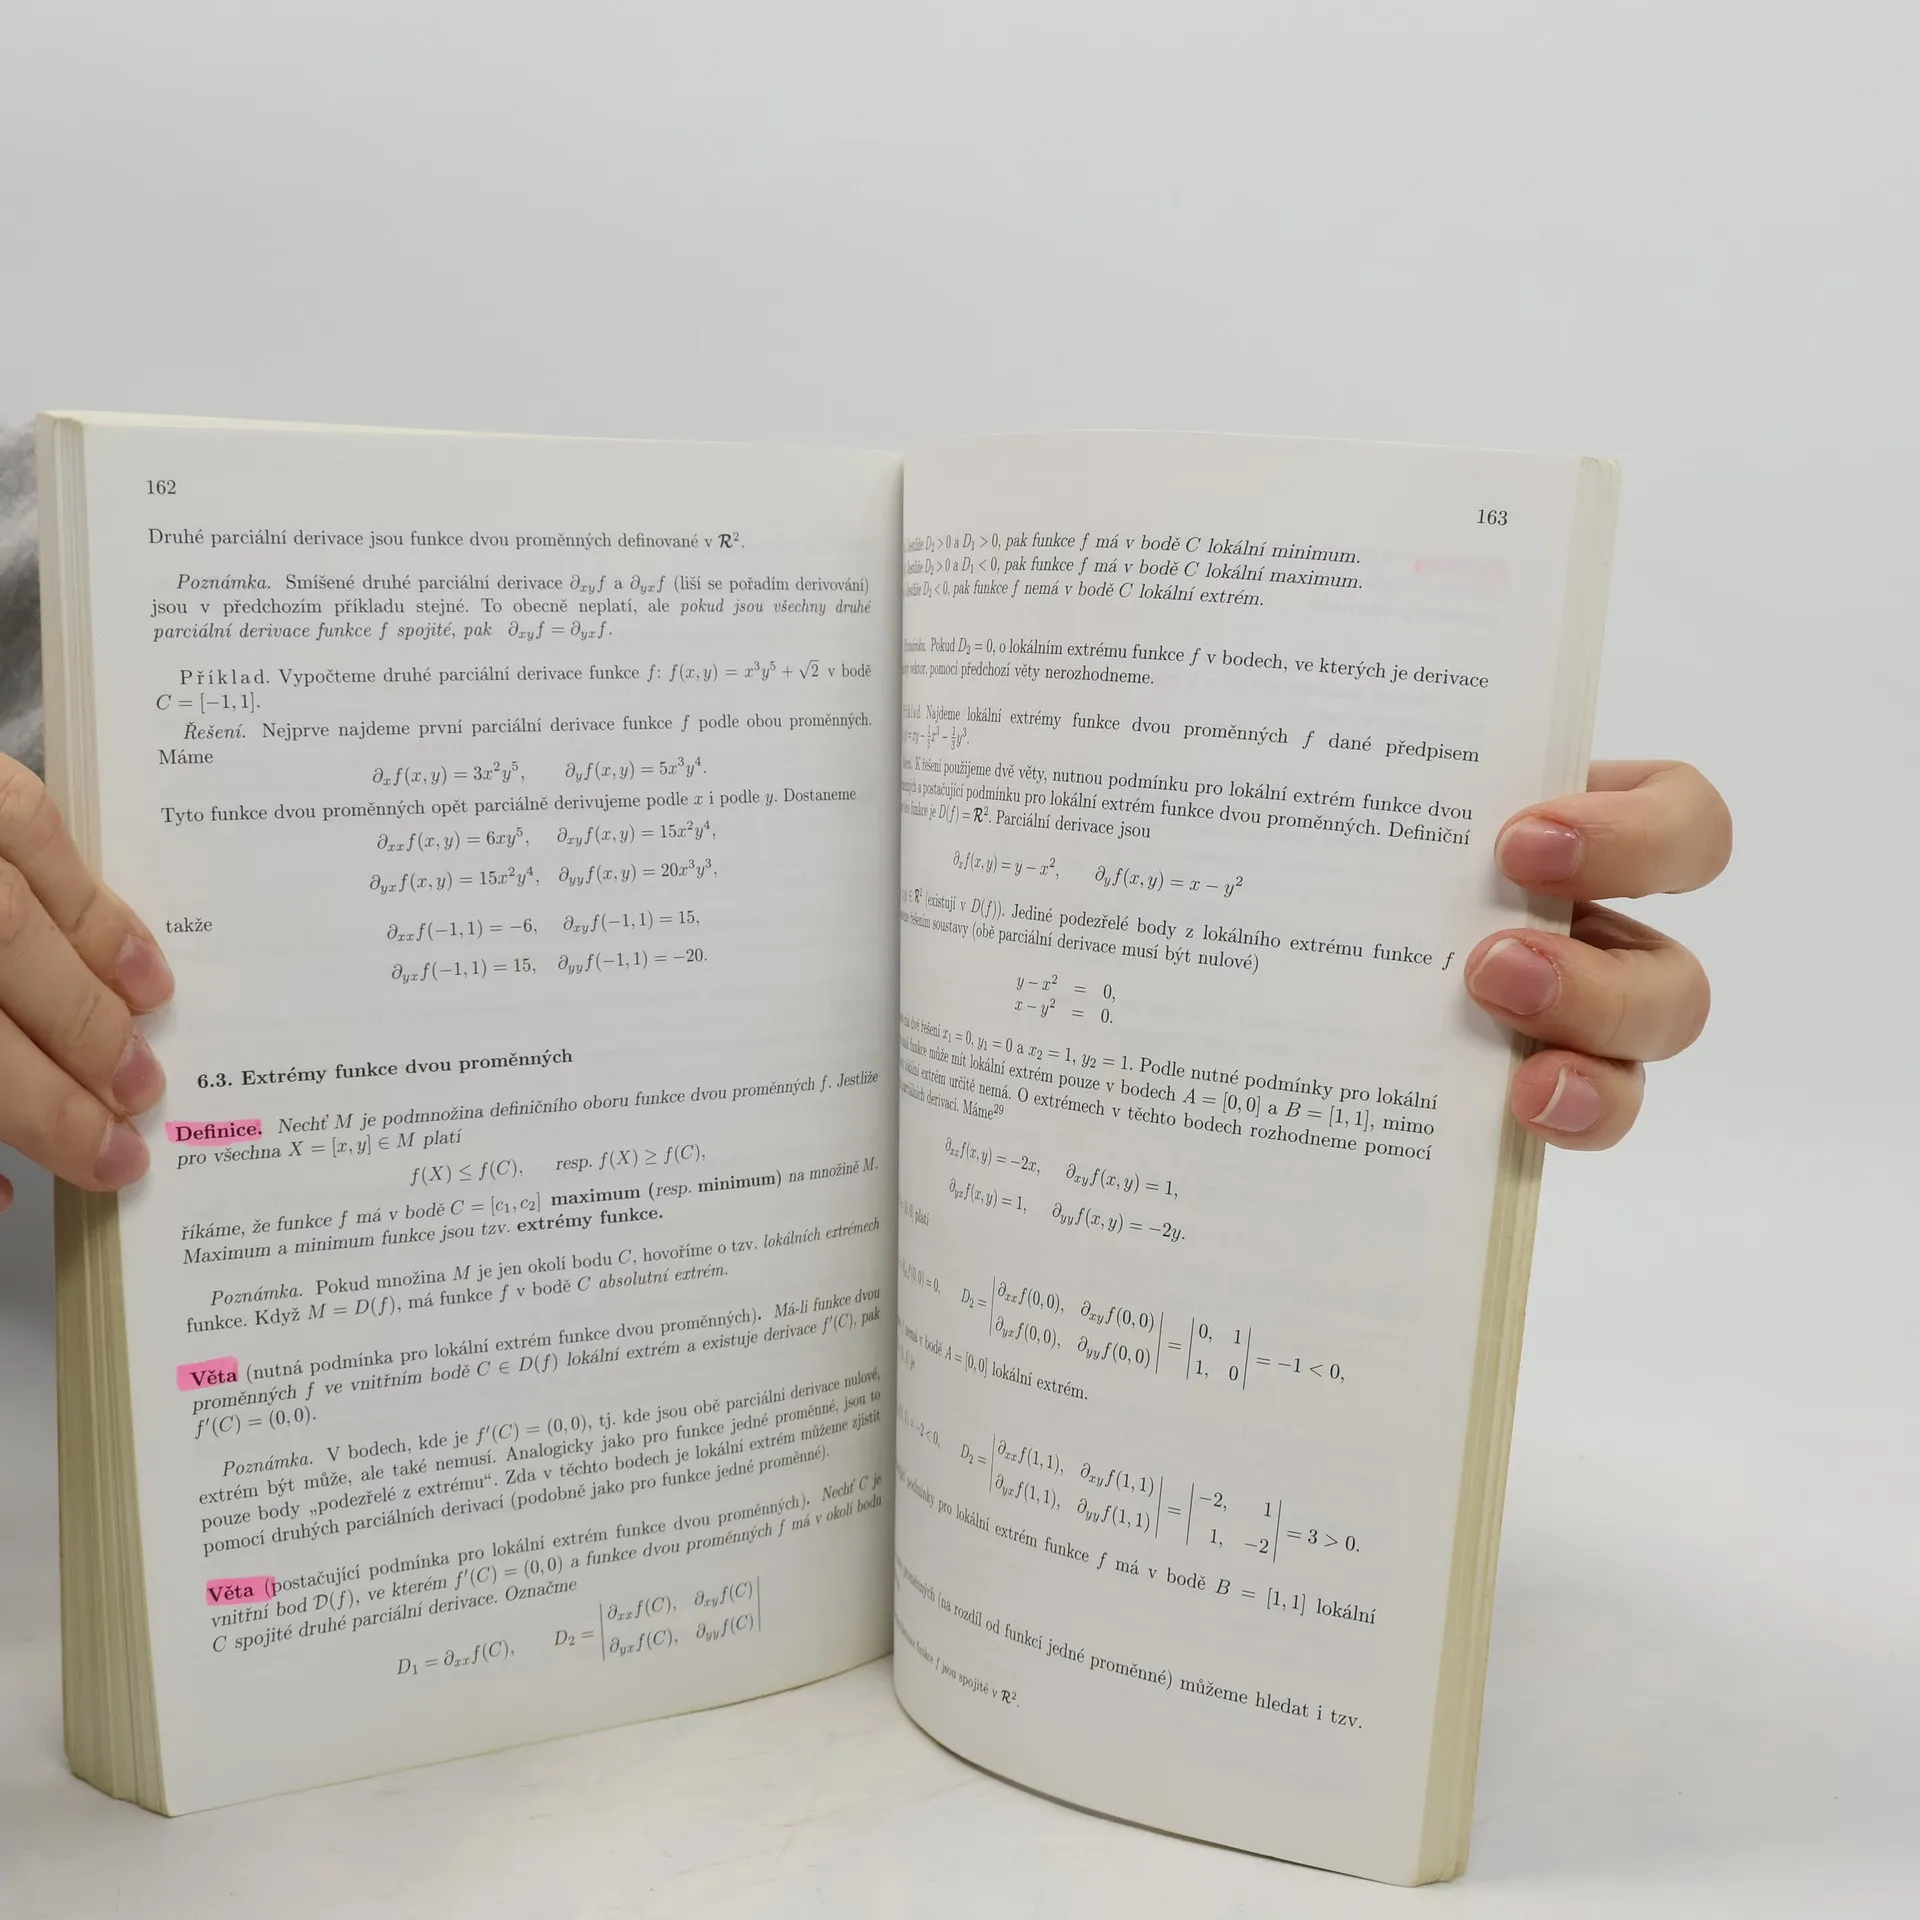 162
Druhé parciální derivace jsou funkce dvou proměnných definované v ℛ².
Poznámka. Smíšené druhé parciální derivace ∂xyf a ∂yxf (liší se pořadím derivování)
jsou v předchozím příkladu stejné. To obecně neplatí, ale pokud jsou všechny druhé
parciální derivace funkce f spojité, pak ∂xyf = ∂yxf.
Příklad. Vypočteme druhé parciální derivace funkce f: f(x, y) = x³y⁵ + √2 v bodě
C = [−1, 1].
Řešení. Nejprve najdeme první parciální derivace funkce f podle obou proměnných.
Máme
∂xf(x, y) = 3x²y⁵, ∂yf(x, y) = 5x³y⁴.
Tyto funkce dvou proměnných opět parciálně derivujeme podle x i podle y. Dostaneme
∂xxf(x, y) = 6xy⁵, ∂xyf(x, y) = 15x²y⁴,
∂yxf(x, y) = 15x²y⁴, ∂yyf(x, y) = 20x³y³,
takže
∂xxf(−1, 1) = −6, ∂xyf(−1, 1) = 15,
∂yxf(−1, 1) = 15, ∂yyf(−1, 1) = −20.
6.3. Extrémy funkce dvou proměnných
Definice. Nechť M je podmnožina definičního oboru funkce dvou proměnných f. Jestliže
pro všechna X = [x, y] ∈ M platí
f(X) ≤ f(C), resp. f(X) ≥ f(C),
říkáme, že funkce f má v bodě C = [c₁, c₂] maximum (resp. minimum) na množině M.
Maximum a minimum funkce jsou tzv. extrémy funkce.
Poznámka. Pokud množina M je jen okolí bodu C, hovoříme o tzv. lokálních extrémech
funkce. Když M = D(f), má funkce f v bodě C absolutní extrém.
Věta (nutná podmínka pro lokální extrém funkce dvou proměnných). Má-li funkce dvou
proměnných f ve vnitřním bodě C ∈ D(f) lokální extrém a existuje derivace f′(C), pak
f′(C) = (0, 0).
Poznámka. V bodech, kde je f′(C) = (0, 0), tj. kde jsou obě parciální derivace nulové,
extrém být může, ale také nemusí. Analogicky jako pro funkce jedné proměnné, jsou to
pouze body „podezřelé z extrému“. Zda v těchto bodech je lokální extrém můžeme zjistit
pomocí druhých parciálních derivací (podobně jako pro funkce jedné proměnné).
Věta (postačující podmínka pro lokální extrém funkce dvou proměnných). Nechť C je
vnitřní bod D(f), ve kterém f′(C) = (0, 0) a funkce dvou proměnných f má v okolí bodu
C spojité druhé parciální derivace. Označme
D₁ = ∂xxf(C), D₂ = |∂xxf(C), ∂xyf(C)|
|∂yxf(C), ∂yyf(C)|
163
Jestliže D₂ > 0 a D₁ > 0, pak funkce f má v bodě C lokální minimum.
Jestliže D₂ > 0 a D₁ < 0, pak funkce f má v bodě C lokální maximum.
Jestliže D₂ < 0, pak funkce f nemá v bodě C lokální extrém.
Poznámka. Pokud D₂ = 0, o lokálním extrému funkce f v bodech, ve kterých je derivace
vektor, pomocí předchozí věty nerozhodneme.
Najdeme lokální extrémy funkce dvou proměnných f dané předpisem
= xy − ⅓x³ − ⅓y³.
K řešení použijeme dvě věty, nutnou podmínku pro lokální extrém funkce dvou
a postačující podmínku pro lokální extrém funkce dvou proměnných. Definiční
funkce je D(f) = ℛ². Parciální derivace jsou
∂xf(x, y) = y − x², ∂yf(x, y) = x − y²
∈ ℛ² (existují v D(f)). Jediné podezřelé body z lokálního extrému funkce f
řešením soustavy (obě parciální derivace musí být nulové)
y − x² = 0,
x − y² = 0.
má dvě řešení x₁ = 0, y₁ = 0 a x₂ = 1, y₂ = 1. Podle nutné podmínky pro lokální
funkce může mít lokální extrém pouze v bodech A = [0, 0] a B = [1, 1], mimo
lokální extrém určitě nemá. O extrémech v těchto bodech rozhodneme pomocí
derivací. Máme²⁹
∂xxf(x, y) = −2x, ∂xyf(x, y) = 1,
∂yxf(x, y) = 1, ∂yyf(x, y) = −2y.
platí
= 0, D₂ = |∂xxf(0, 0), ∂xyf(0, 0)| = |0, 1| = −1 < 0,
|∂yxf(0, 0), ∂yyf(0, 0)| |1, 0|
f nemá v bodě A = [0, 0] lokální extrém.
je
= −2 < 0, D₂ = |∂xxf(1, 1), ∂xyf(1, 1)| = |−2, 1| = 3 > 0.
|∂yxf(1, 1), ∂yyf(1, 1)| |1, −2|
podmínky pro lokální extrém funkce f má v bodě B = [1, 1] lokální
proměnných (na rozdíl od funkcí jedné proměnné) můžeme hledat i tzv.
funkce f jsou spojité v ℛ².